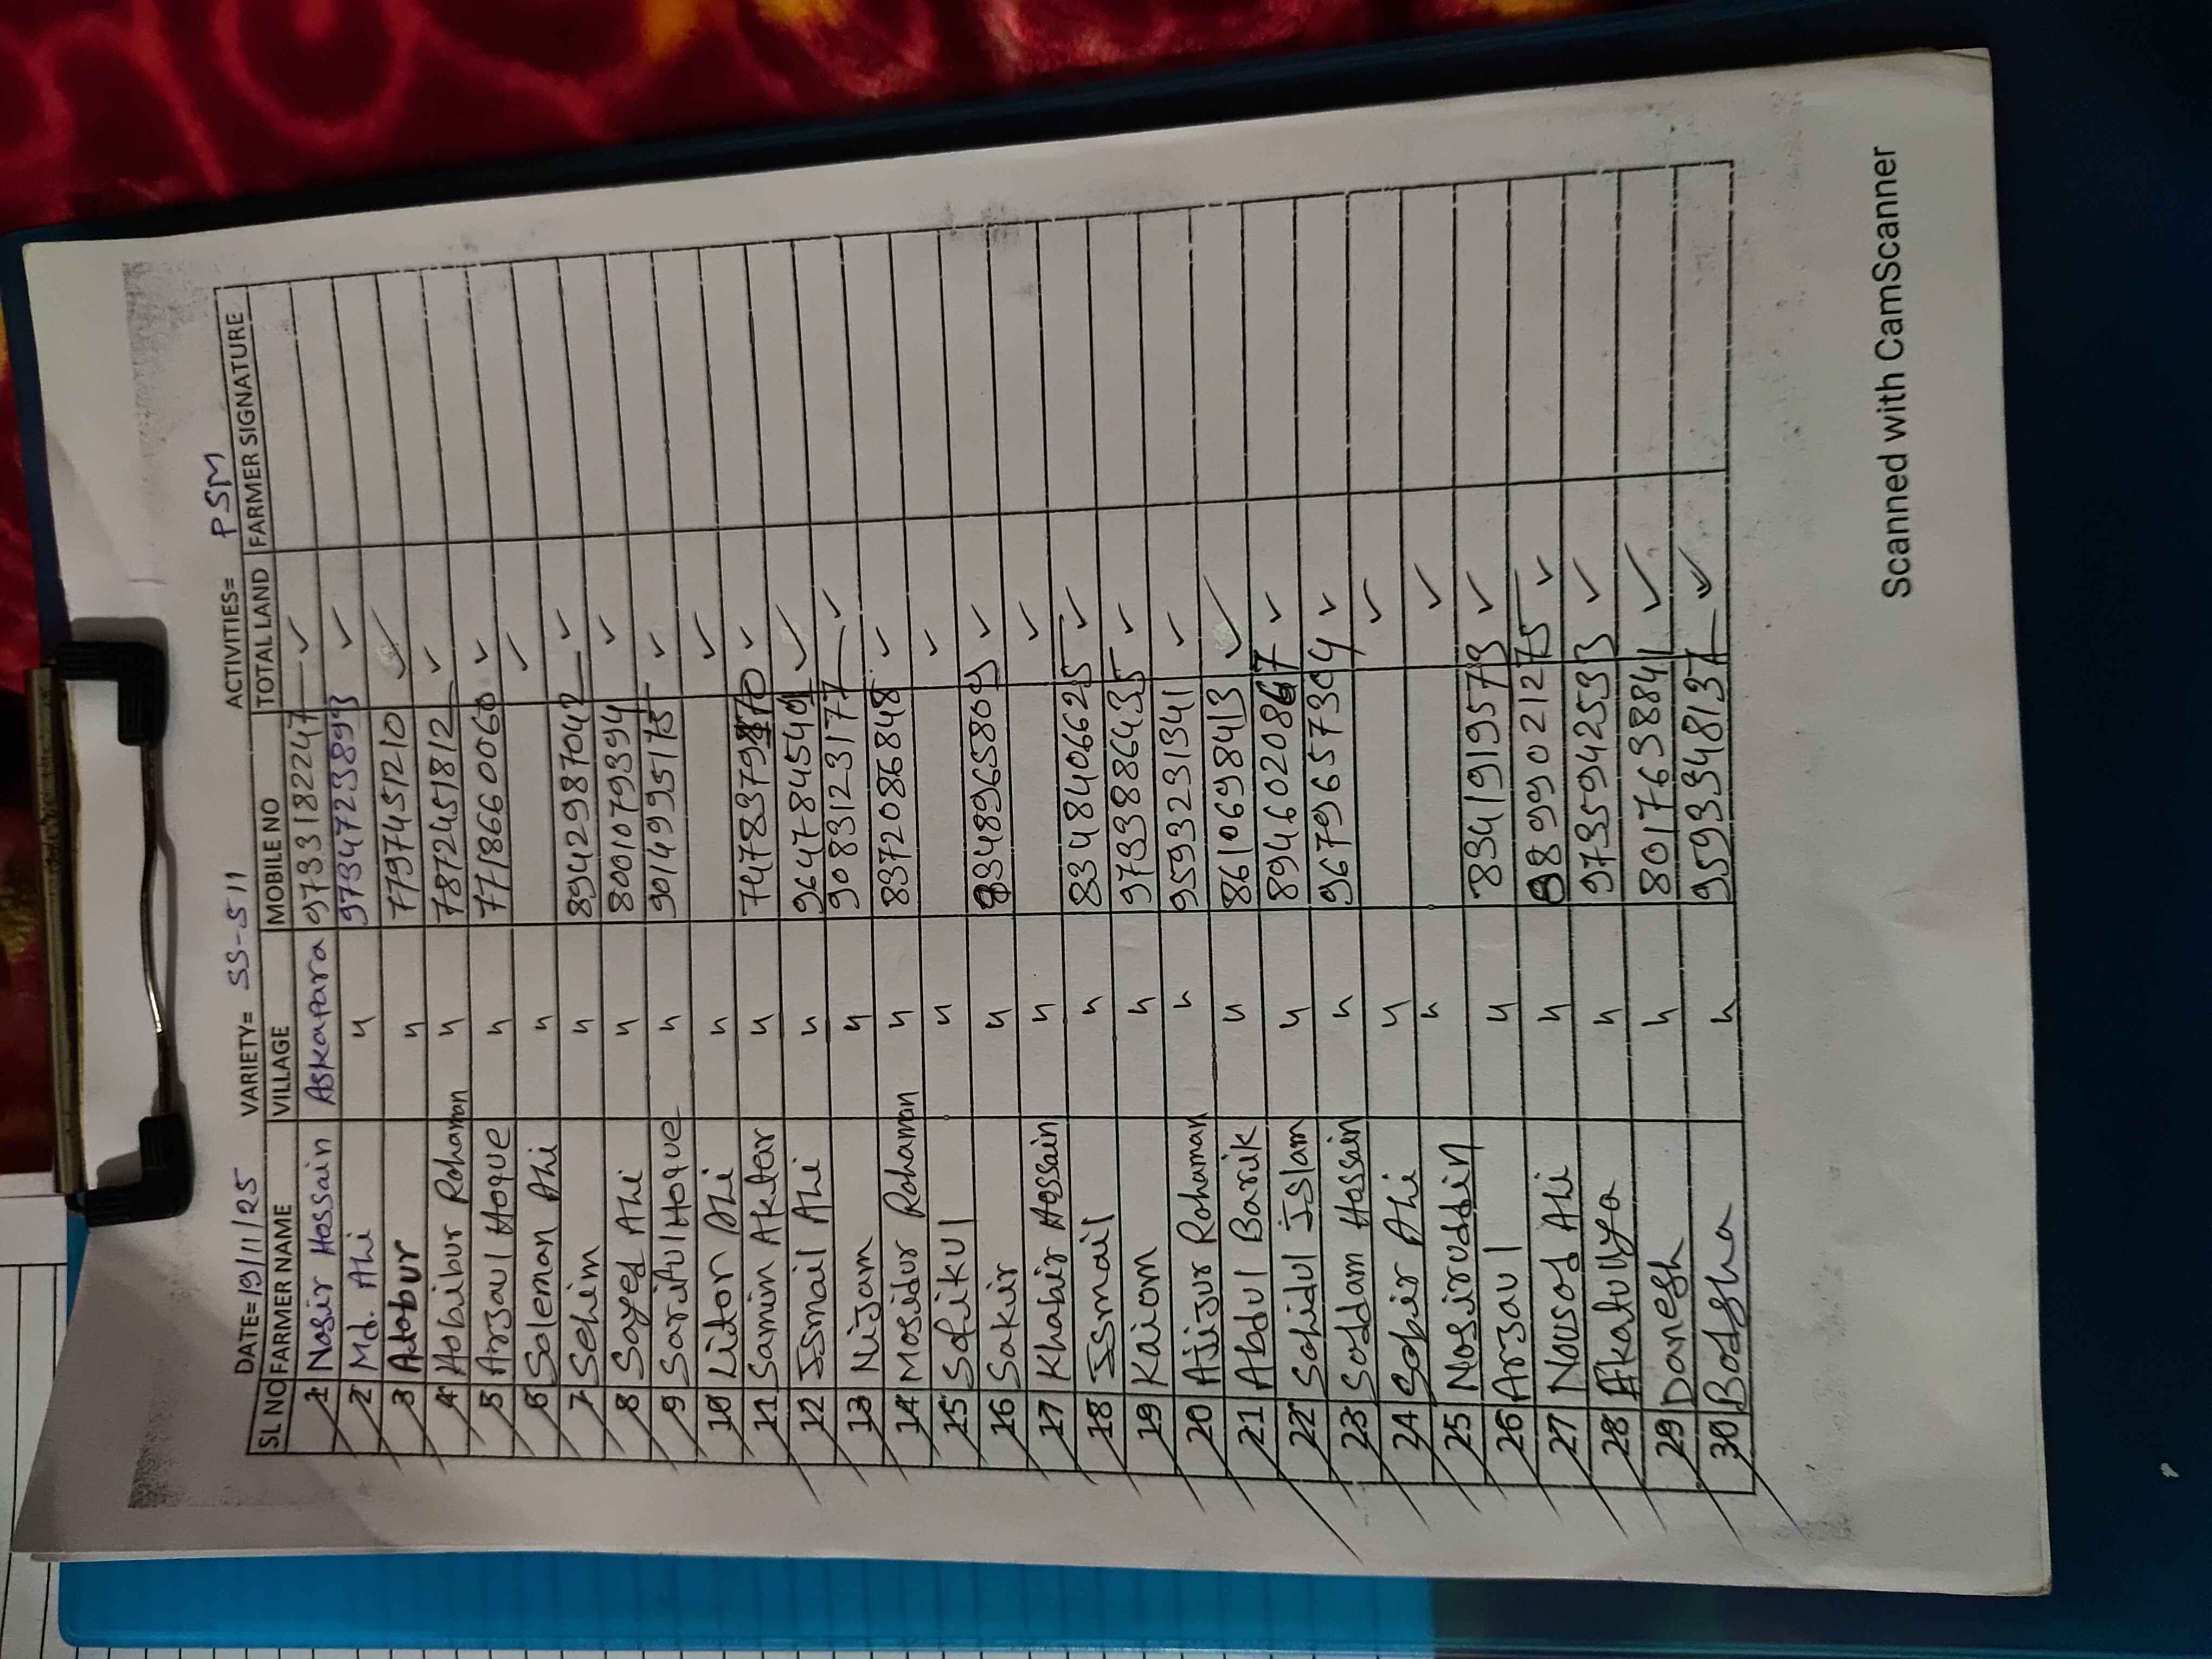 DATE=19/11/25 VARIETY= SS-511 ACTIVITIES= PSM
SL NO FARMER NAME VILLAGE MOBILE NO TOTAL LAND FARMER SIGNATURE
1 Nasir Hossain Askapara 9733182247 ✓
2 Md. Ali 〃 9734723893 ✓
3 〃 7797451210 ✓
4 Habibur Rohaman 〃 7872451812 ✓
5 Arzaul Hoque 〃 7718660060 ✓
6 Soleman Ali 〃 ✓
7 Selim 〃 8942987042 ✓
8 Sayed Ali 〃 8001079394 ✓
9 Soriful Hoque 〃 9014995175 ✓
10 Litor Ali 〃 ✓
11 Samin Akter 〃 ✓
12 Ismail Ali 〃 ✓
13 Nijam 〃 9083123177 ✓
14 Mosidur Rohaman 〃 8372086848 ✓
15 Sofikul 〃 ✓
16 Sakir 〃 8348965809 ✓
17 Khabir Hossain 〃 ✓
18 Ismail 〃 8348406625 ✓
19 Kaiom 〃 9733886435 ✓
20 Ajijur Rohaman 〃 9593231341 ✓
21 Abdul Barik 〃 8610698413 ✓
22 Sohidul Islam 〃 ✓
23 Soddam Hossain 〃 ✓
24 Sobir Ali 〃 ✓
25 Nosiruddin 〃 ✓
26 Arzaul 〃 8341919573 ✓
27 Nousod Ali 〃 ✓
28 〃 9735942533 ✓
29 Danesh 〃 8017638841 ✓
30 Bodsha 〃 9593348137 ✓
Scanned with CamScanner